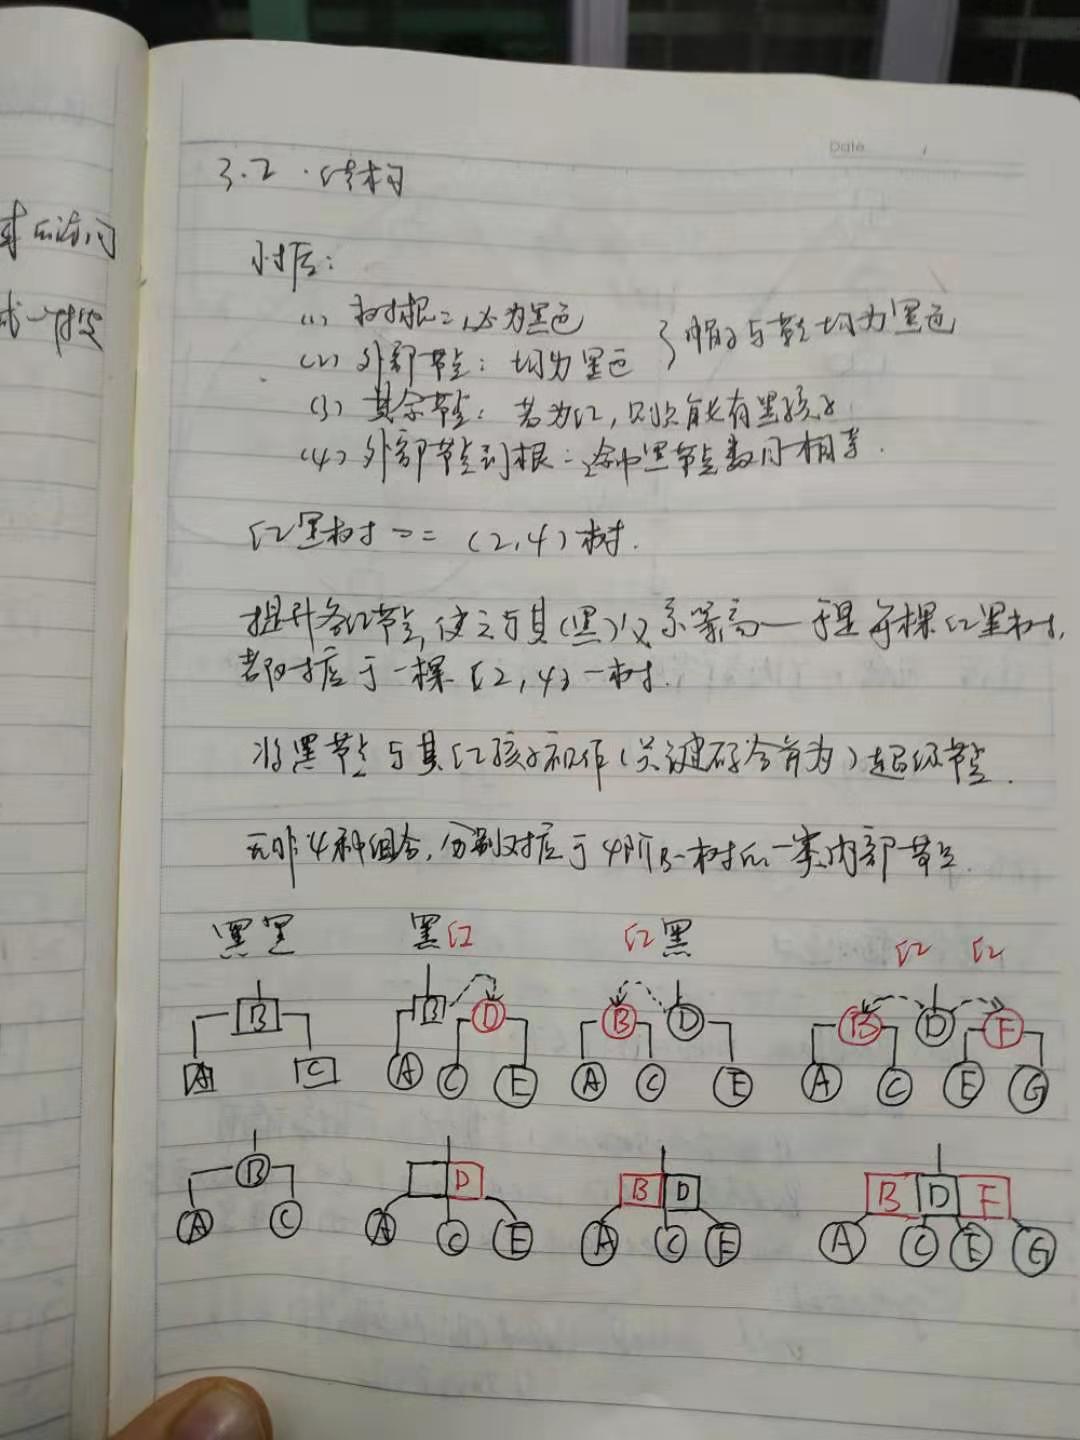 Date
3.2 · 结构
对应:
(1) 树根:必为黑色
(2) 外部节点:均为黑色
} 与 均为黑色
(3) 其余节点:若为红,则只能有黑孩子
(4) 外部节点到根:途中黑节点数目相等.
红黑树 == (2,4)树.
提升各红节点,使之与其(黑)父亲等高—于是每棵红黑树,
都对应于一棵(2,4)-树.
将黑节点与其红孩子视作(关键码合并为)超级节点.
无非4种组合,分别对应于4阶B-树的一类内部节点.
黑黑 黑红 红黑 红 红
B B D B D B D F
A C A C E A C E A C E G
B D B D B D F
A C A C E A C E A C E G